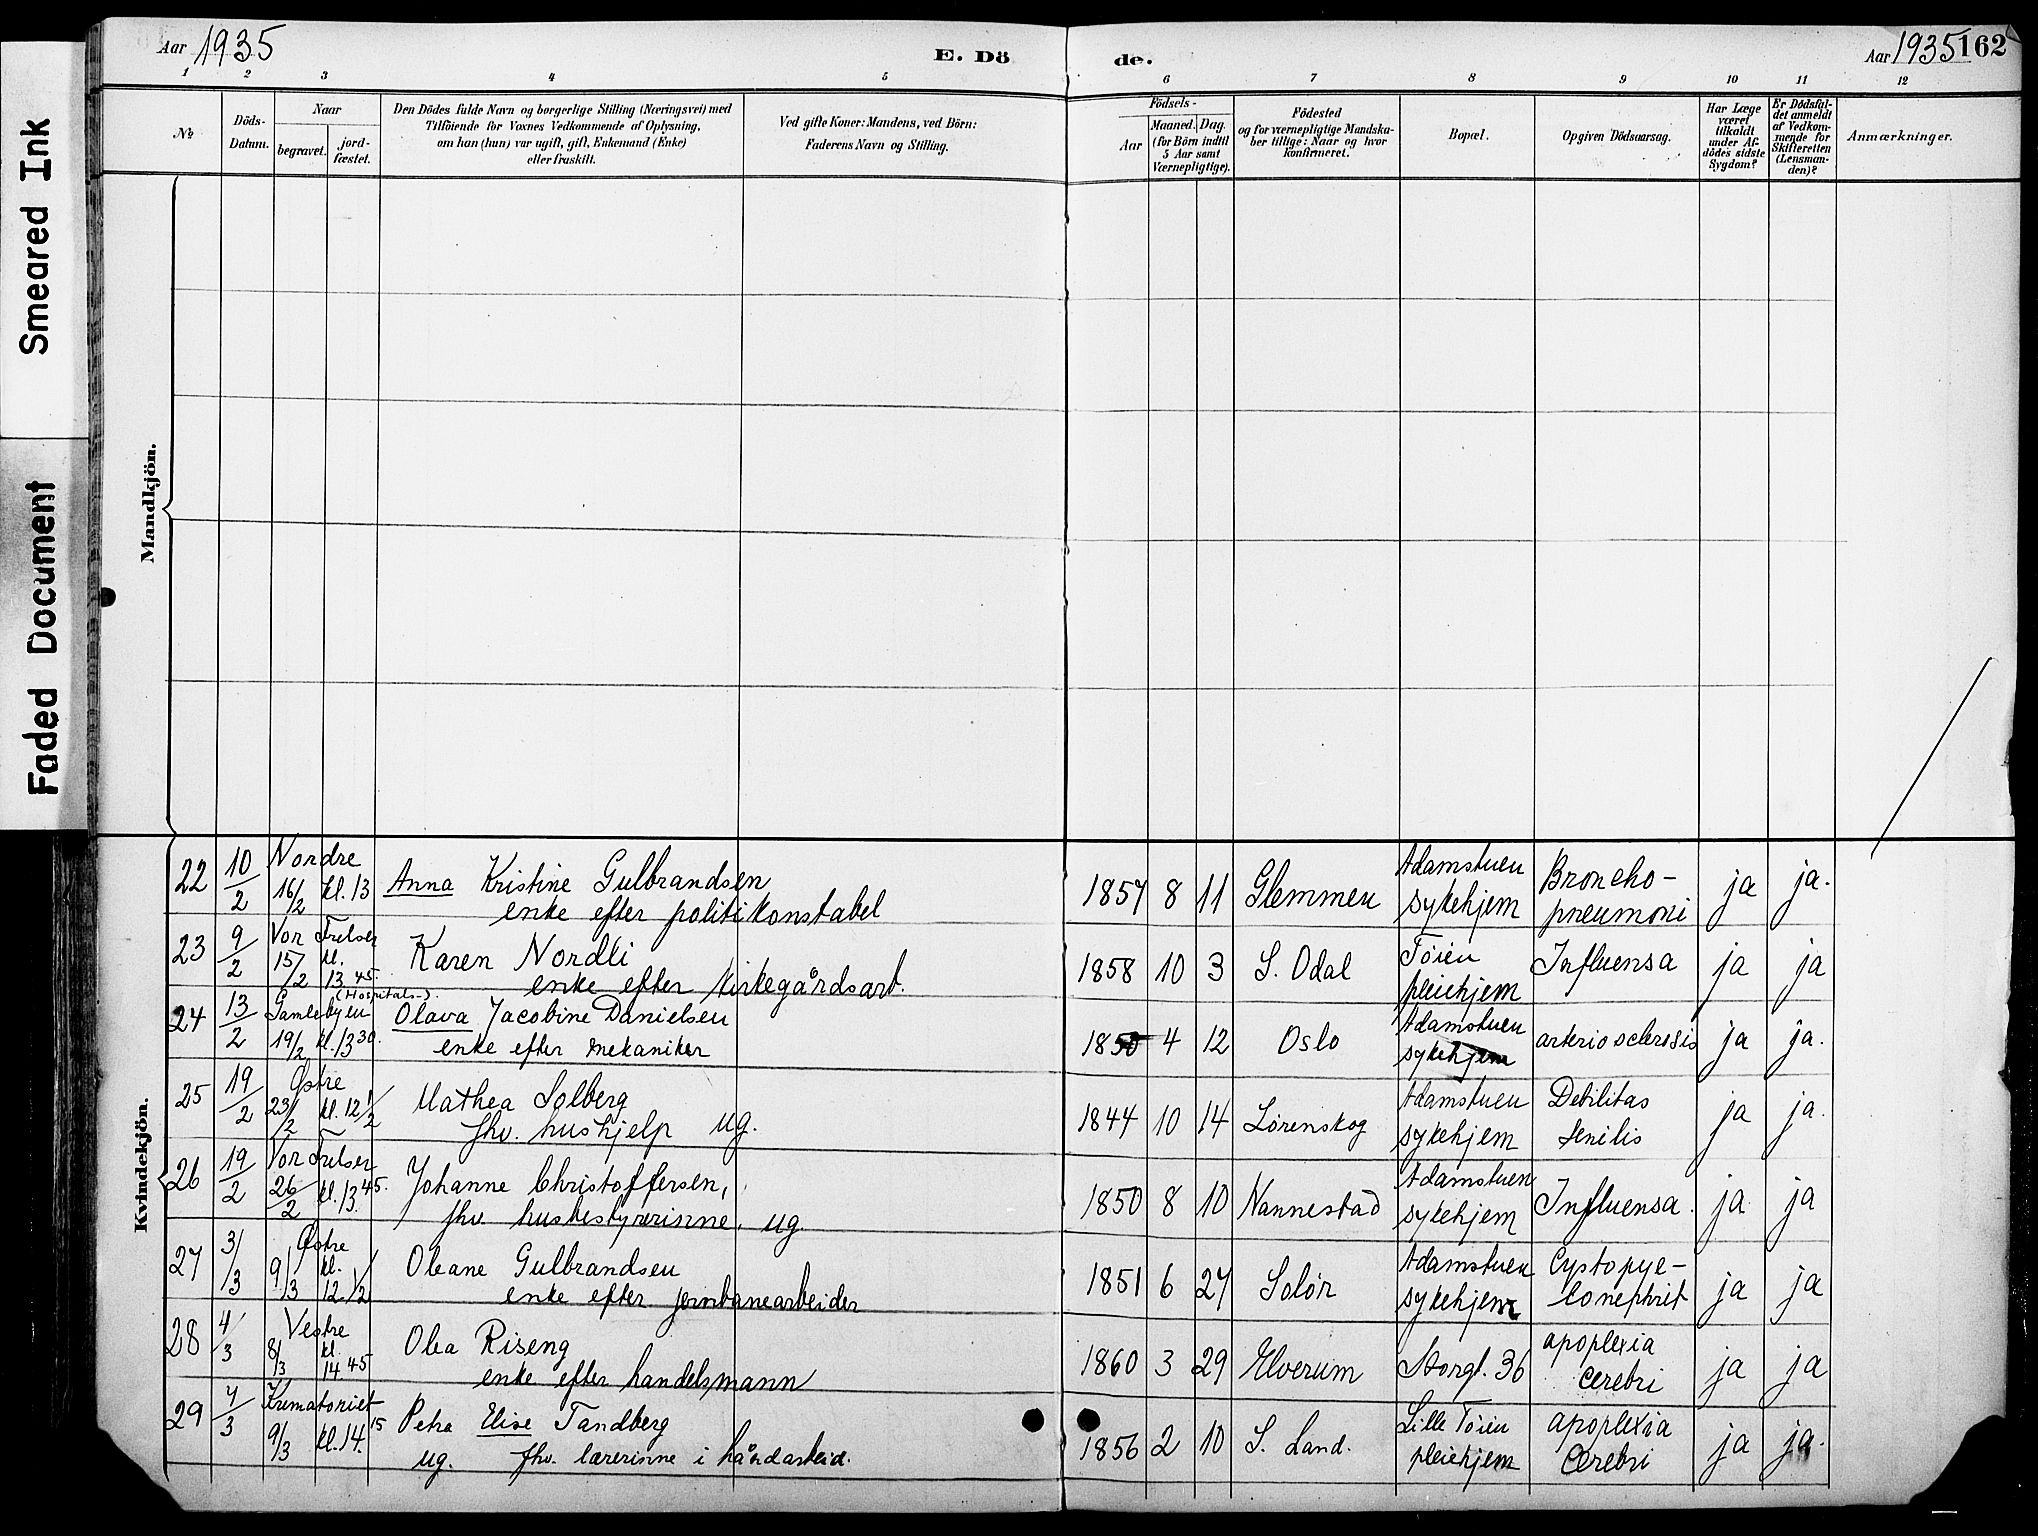 Smeared Ink
Faded Document
Aar 1935
E. Dö
de.
Aar 1935 162
1 2 3 4 5 6 7 8 9 10 11 12
No
Döds-
Datum.
Naar
begravet.
jord-
fæstet.
Den Dödes fulde Navn og borgerlige Stilling (Næringsvei) med
Tilföiende for Voxnes Vedkommende af Oplysning,
om han (hun) var ugift, gift, Enkemand (Enke)
eller fraskilt.
Ved gifte Koner: Mandens, ved Börn:
Faderens Navn og Stilling.
Födsels-
Aar
Maaned. Dag.
(for Börn indtil
5 Aar samt
Værnepligtige).
Födested
og for værnepligtige Mandska-
ber tillige: Naar og hvor
konfirmeret.
Bopæl.
Opgiven Dödsaarsag.
Har Læge
været
tilkaldt
under Af-
dödes sidste
Sygdom?
Er Dödsfal-
det anmeldt
af Vedkom-
mende for
Skifteretten
(Lensman-
den)?
Anmærkninger.
Mandkjön.
Kvindekjön.
22 10/2 Nordre 16/2 kl. 13 Anna Kristine Gulbrandsen
enke efter politikonstabel
1857 8 11 Glemmen Adamstuen sykehjem Broncho-pneumoni ja ja.
23 9/2 Vor Frelser 15/2 kl. 13 45. Karen Nordli
enke efter kirkegårdsarb.
1858 10 3 S. Odal Tøien pleiehjem Influensa ja ja
24 13/2 Gamlebyen (Hospitals-). 19/2 kl. 13 30. Olava Jacobine Danielsen
enke efter mekaniker
1850 4 12 Oslo Adamstuen sykehjem arteriosclerosis ja ja.
25 19/2 Østre 23/2 kl. 12 1/2 Mathea Solberg
fhv. hushjelp ug.
1844 10 14 Lørenskog Adamstuen sykehjem Debilitas senilis ja ja.
26 19/2 Vor Frelser 26/2 kl. 13 45. Johanne Christoffersen,
fhv. husbestyrerinne, ug.
1850 8 10 Nannestad Adamstuen sykehjem Influensa. ja ja
27 3/3 Østre 9/3 kl. 12. 1/2 Oleane Gulbrandsen
enke efter jernbanearbeider
1851 6 27 Solør Adamstuen sykehjem Cystopye-lonephrit ja ja
28 4/3 Vestre 8/3 kl. 14 45 Olea Riseng
enke efter handelsmann
1860 3 29 Elverum Storgt. 36 apoplexia cerebri ja ja
29 7/3 Krematoriet 9/3 kl. 14. 15 Petra Elise Tandberg
ug. fhv. lærerinne i håndarbeid.
1856 2 10 S. Land. Lille Tøien pleiehjem apoplexia Cerebri ja ja.